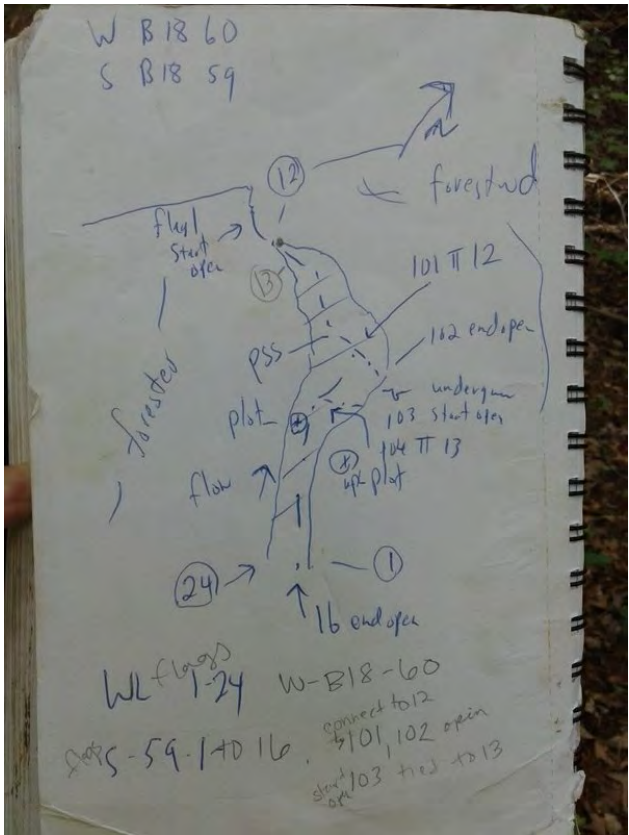 W B18 60
S B18 59
N
12
forested
flag 1
start
open
13
101 TT 12
102 end open
forested
pss
undergrnd
103 start open
plot
104 TT 13
upl plot
flow
24
1
16 end open
WL flags 1-24
W-B18-60
flags S-59-1 to 16
connect to 12
101, 102 open
start
open 103 tied to 13